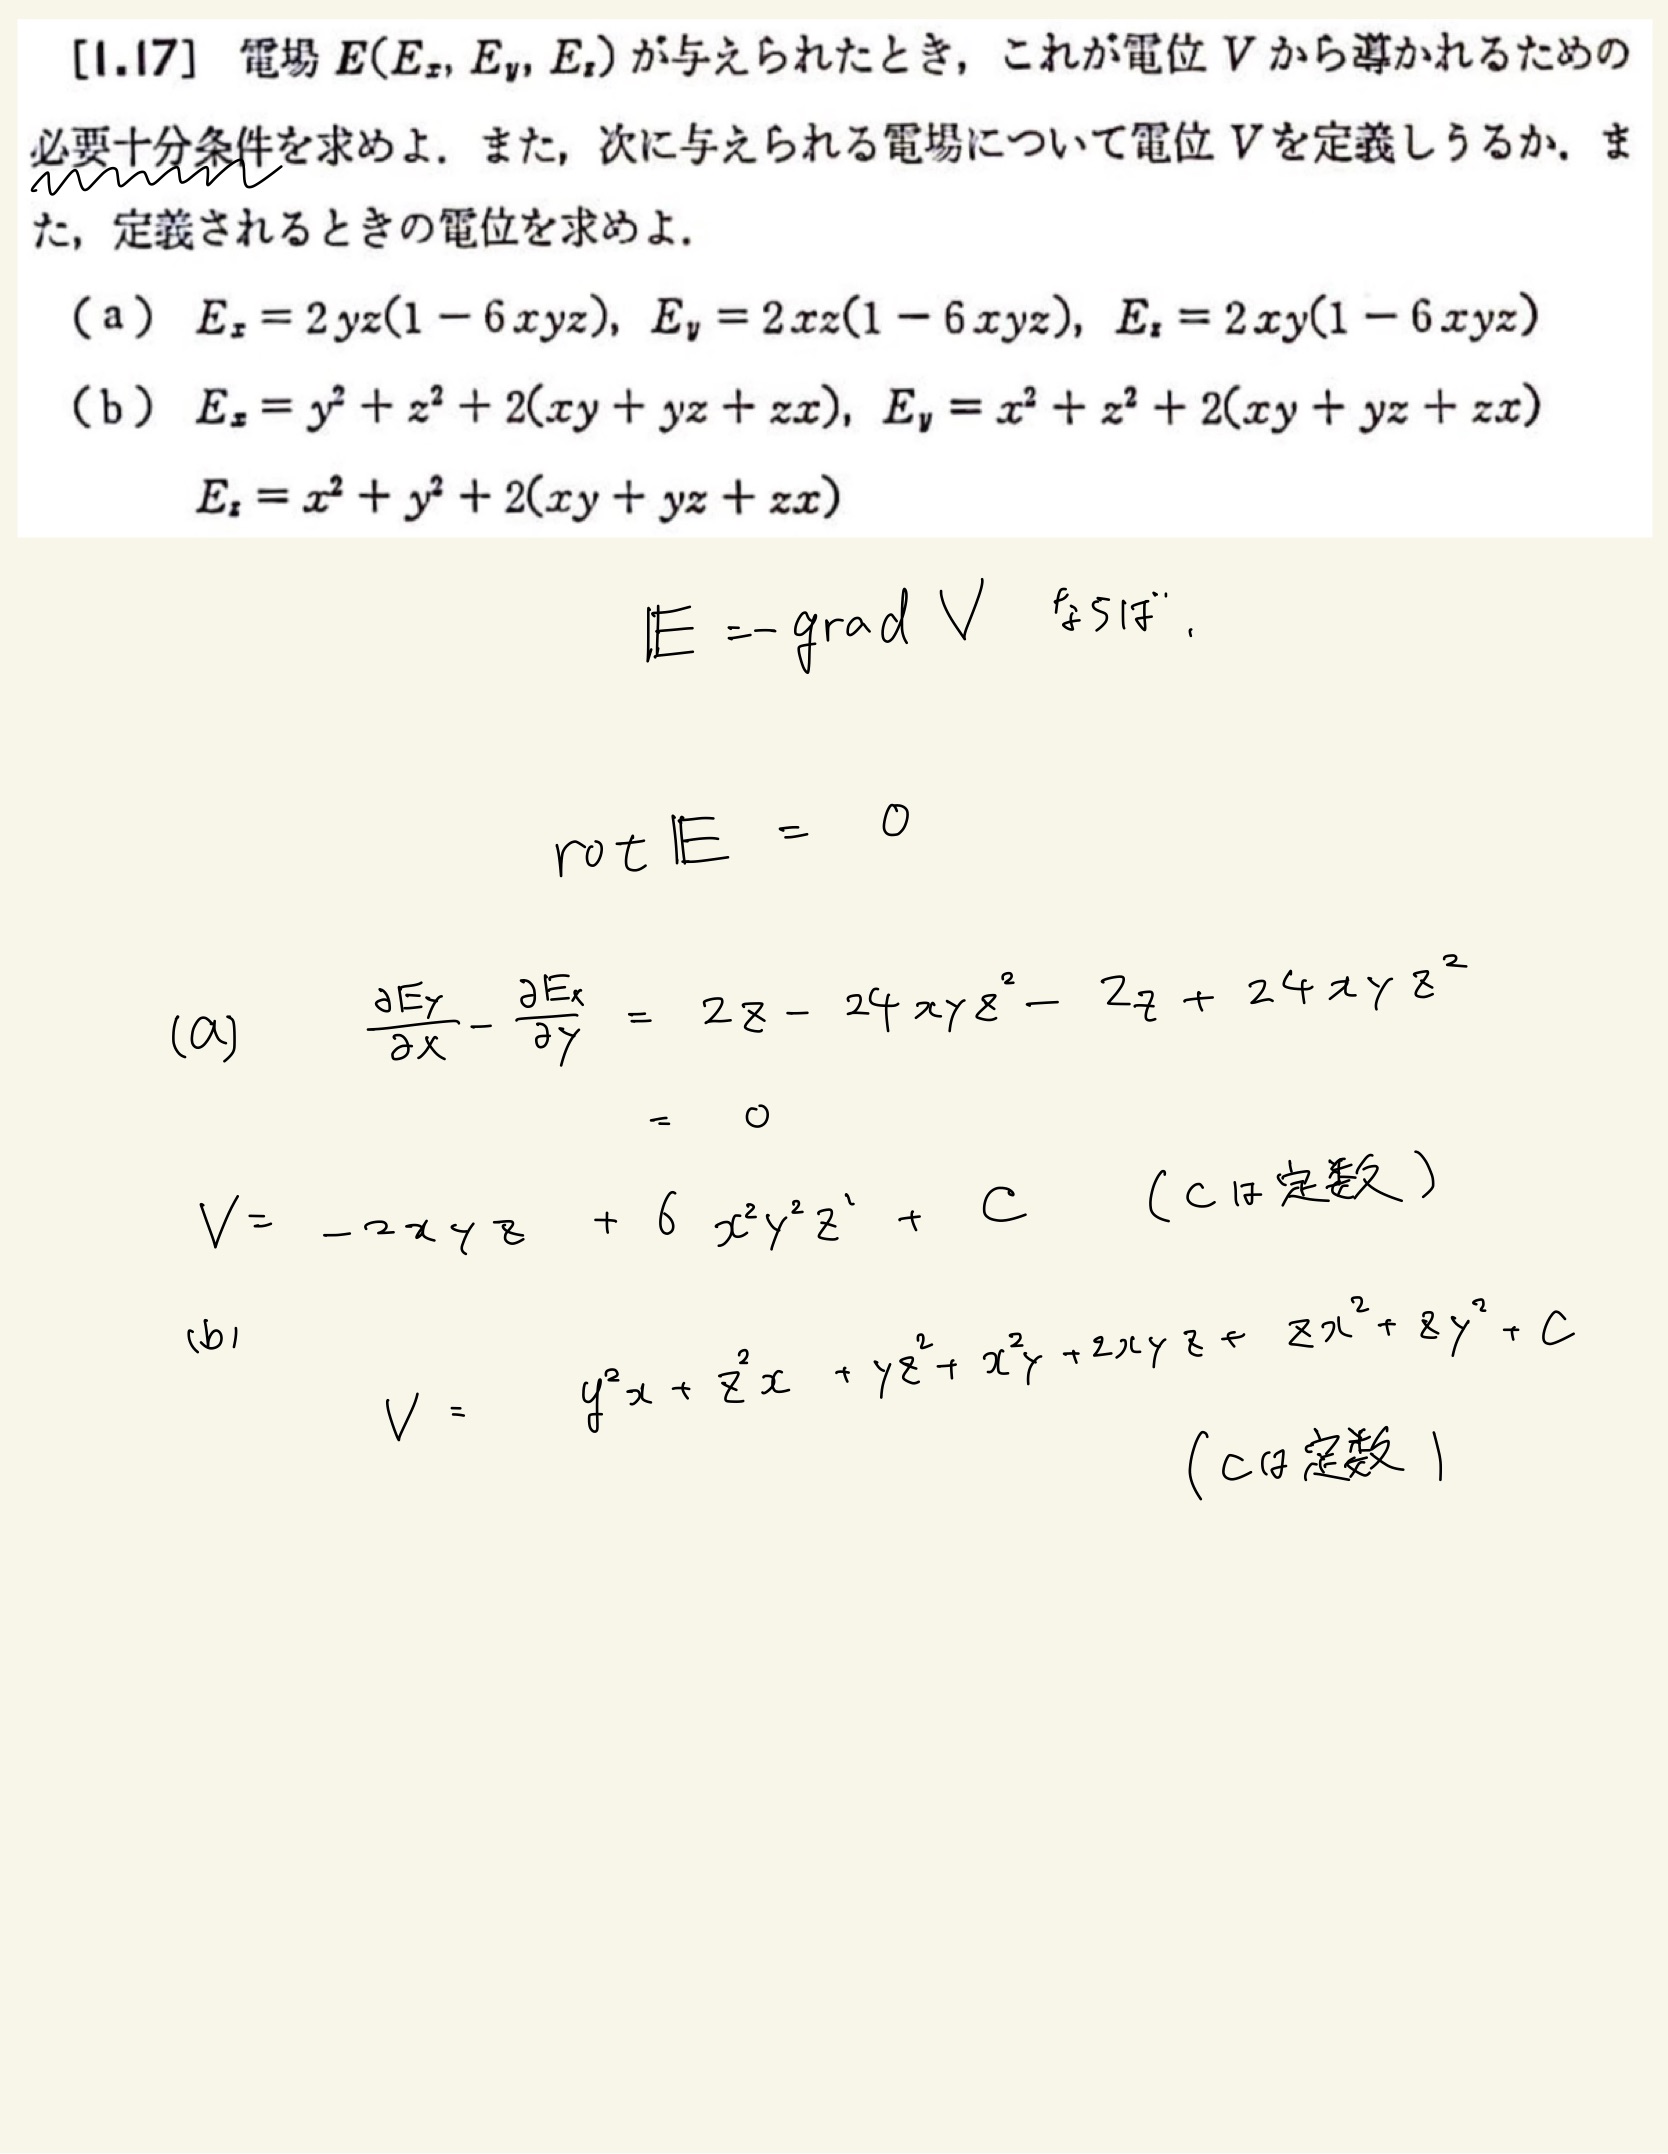 [1.17] 電場 E(Ex, Ey, Ez) が与えられたとき，これが電位 V から導かれるための
必要十分条件を求めよ．また，次に与えられる電場について電位 V を定義しうるか．ま
た，定義されるときの電位を求めよ．
(a) Ex = 2yz(1 − 6xyz), Ey = 2xz(1 − 6xyz), Ez = 2xy(1 − 6xyz)
(b) Ex = y² + z² + 2(xy + yz + zx), Ey = x² + z² + 2(xy + yz + zx)
Ez = x² + y² + 2(xy + yz + zx)
E = − grad V ならば．
rot E = 0
(a) ∂Ey/∂x − ∂Ex/∂y = 2z − 24xyz² − 2z + 24xyz²
= 0
V = −2xyz + 6x²y²z² + C (Cは定数)
(b)
V = y²x + z²x + yz² + x²y + 2xyz + zx² + zy² + C
(Cは定数)